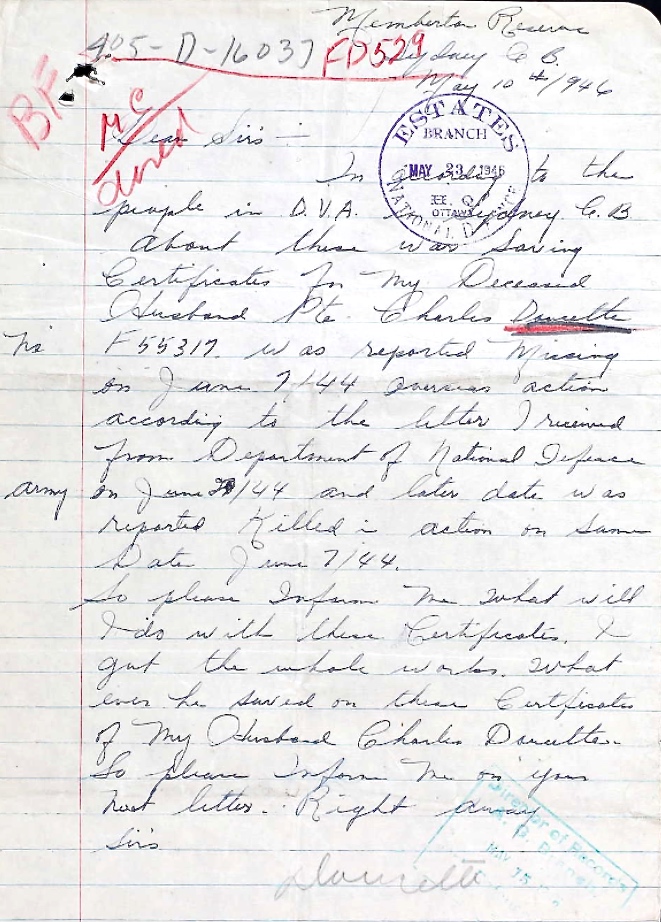 Memberton Reserve
405-D-16037 FD529
Sydney C. B.
May 10th/1946
BF
MC
Dear Sirs -
ESTATES
BRANCH
MAY 23 1946
H. Q.
OTTAWA
NATIONAL DEFENCE
In according to the
people in D.V.A. Sydney C.B
about these war Saving
Certificates for My Deceased
Husband Pte. Charles Doucette
F 55317. was reported Missing
on June 7/44 overseas action
according to the letter I received
from Department of National Defence
army
on June /44 and later date was
reported Killed in action on Same
Date June 7/44.
So please Inform Me what will
I do with these Certificates. I
gut the whole works. What
ever he saved on these Certificates
of My Husband Charles Doucette.
So please Inform Me on your
next letter. Right away
Sirs
Director of Records
MAY 15
Doucette